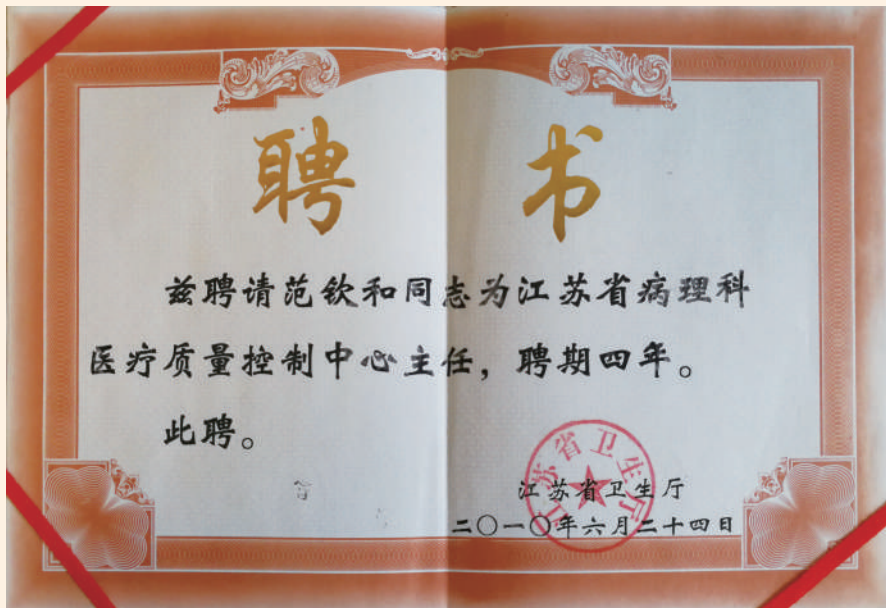 聘书
兹聘请范钦和同志为江苏省病理科
医疗质量控制中心主任，聘期四年。
此聘。
江苏省卫生厅
江苏省卫生厅
二〇一〇年六月二十四日